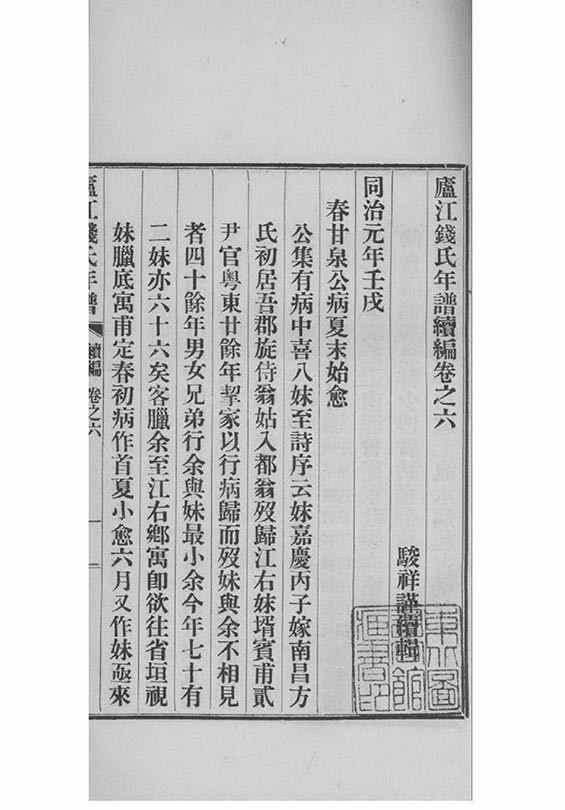 廬江錢氏年譜續編卷之六
駿祥謹續輯
同治元年壬戌
春甘泉公病夏末始愈
公集有病中喜八妹至詩序云妹嘉慶丙子嫁南昌方
氏初居吾郡旋侍翁姑入都翁歿歸江右妹壻賓甫貳
尹官粵東廿餘年挈家以行病歸而歿妹與余不相見
者四十餘年男女兄弟行余與妹最小余今年七十有
二妹亦六十六矣客臘余至江右鄕寓卽欲往省垣視
妹臘底寓甫定春初病作首夏小愈六月又作妹亟來
廬江錢氏年譜 續編 卷之六 一